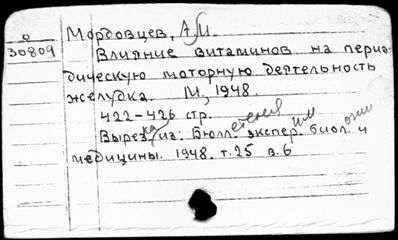 о
30809
Мордовцев, А.И.
Влияние витаминов на перио-
дическую моторную деятельность
желудка. М., 1948.
422-426 стр.
Вырезка из: Бюллетеней экспер.им биол.огии и
медицины. 1948. т.25 в.6